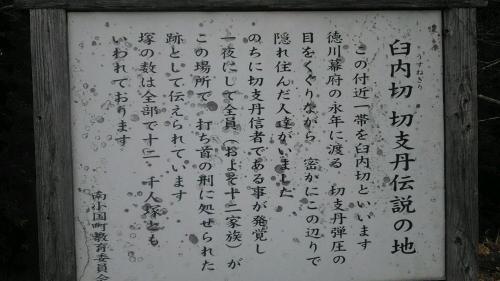 うすねぎり
臼内切 切支丹伝説の地
この付近一帯を臼内切といいます
徳川幕府の永年に渡る 切支丹弾圧の
目をくぐりながら 密かにこの辺りで
隠れ住んだ人達がいました
のちに切支丹信者である事が発覚し
一夜にして全員（およそ十二家族）が
この場所で 打ち首の刑に処せられた
跡として伝えられています
塚の数は全部で十二 千人塚とも
いわれております
南小国町教育委員会